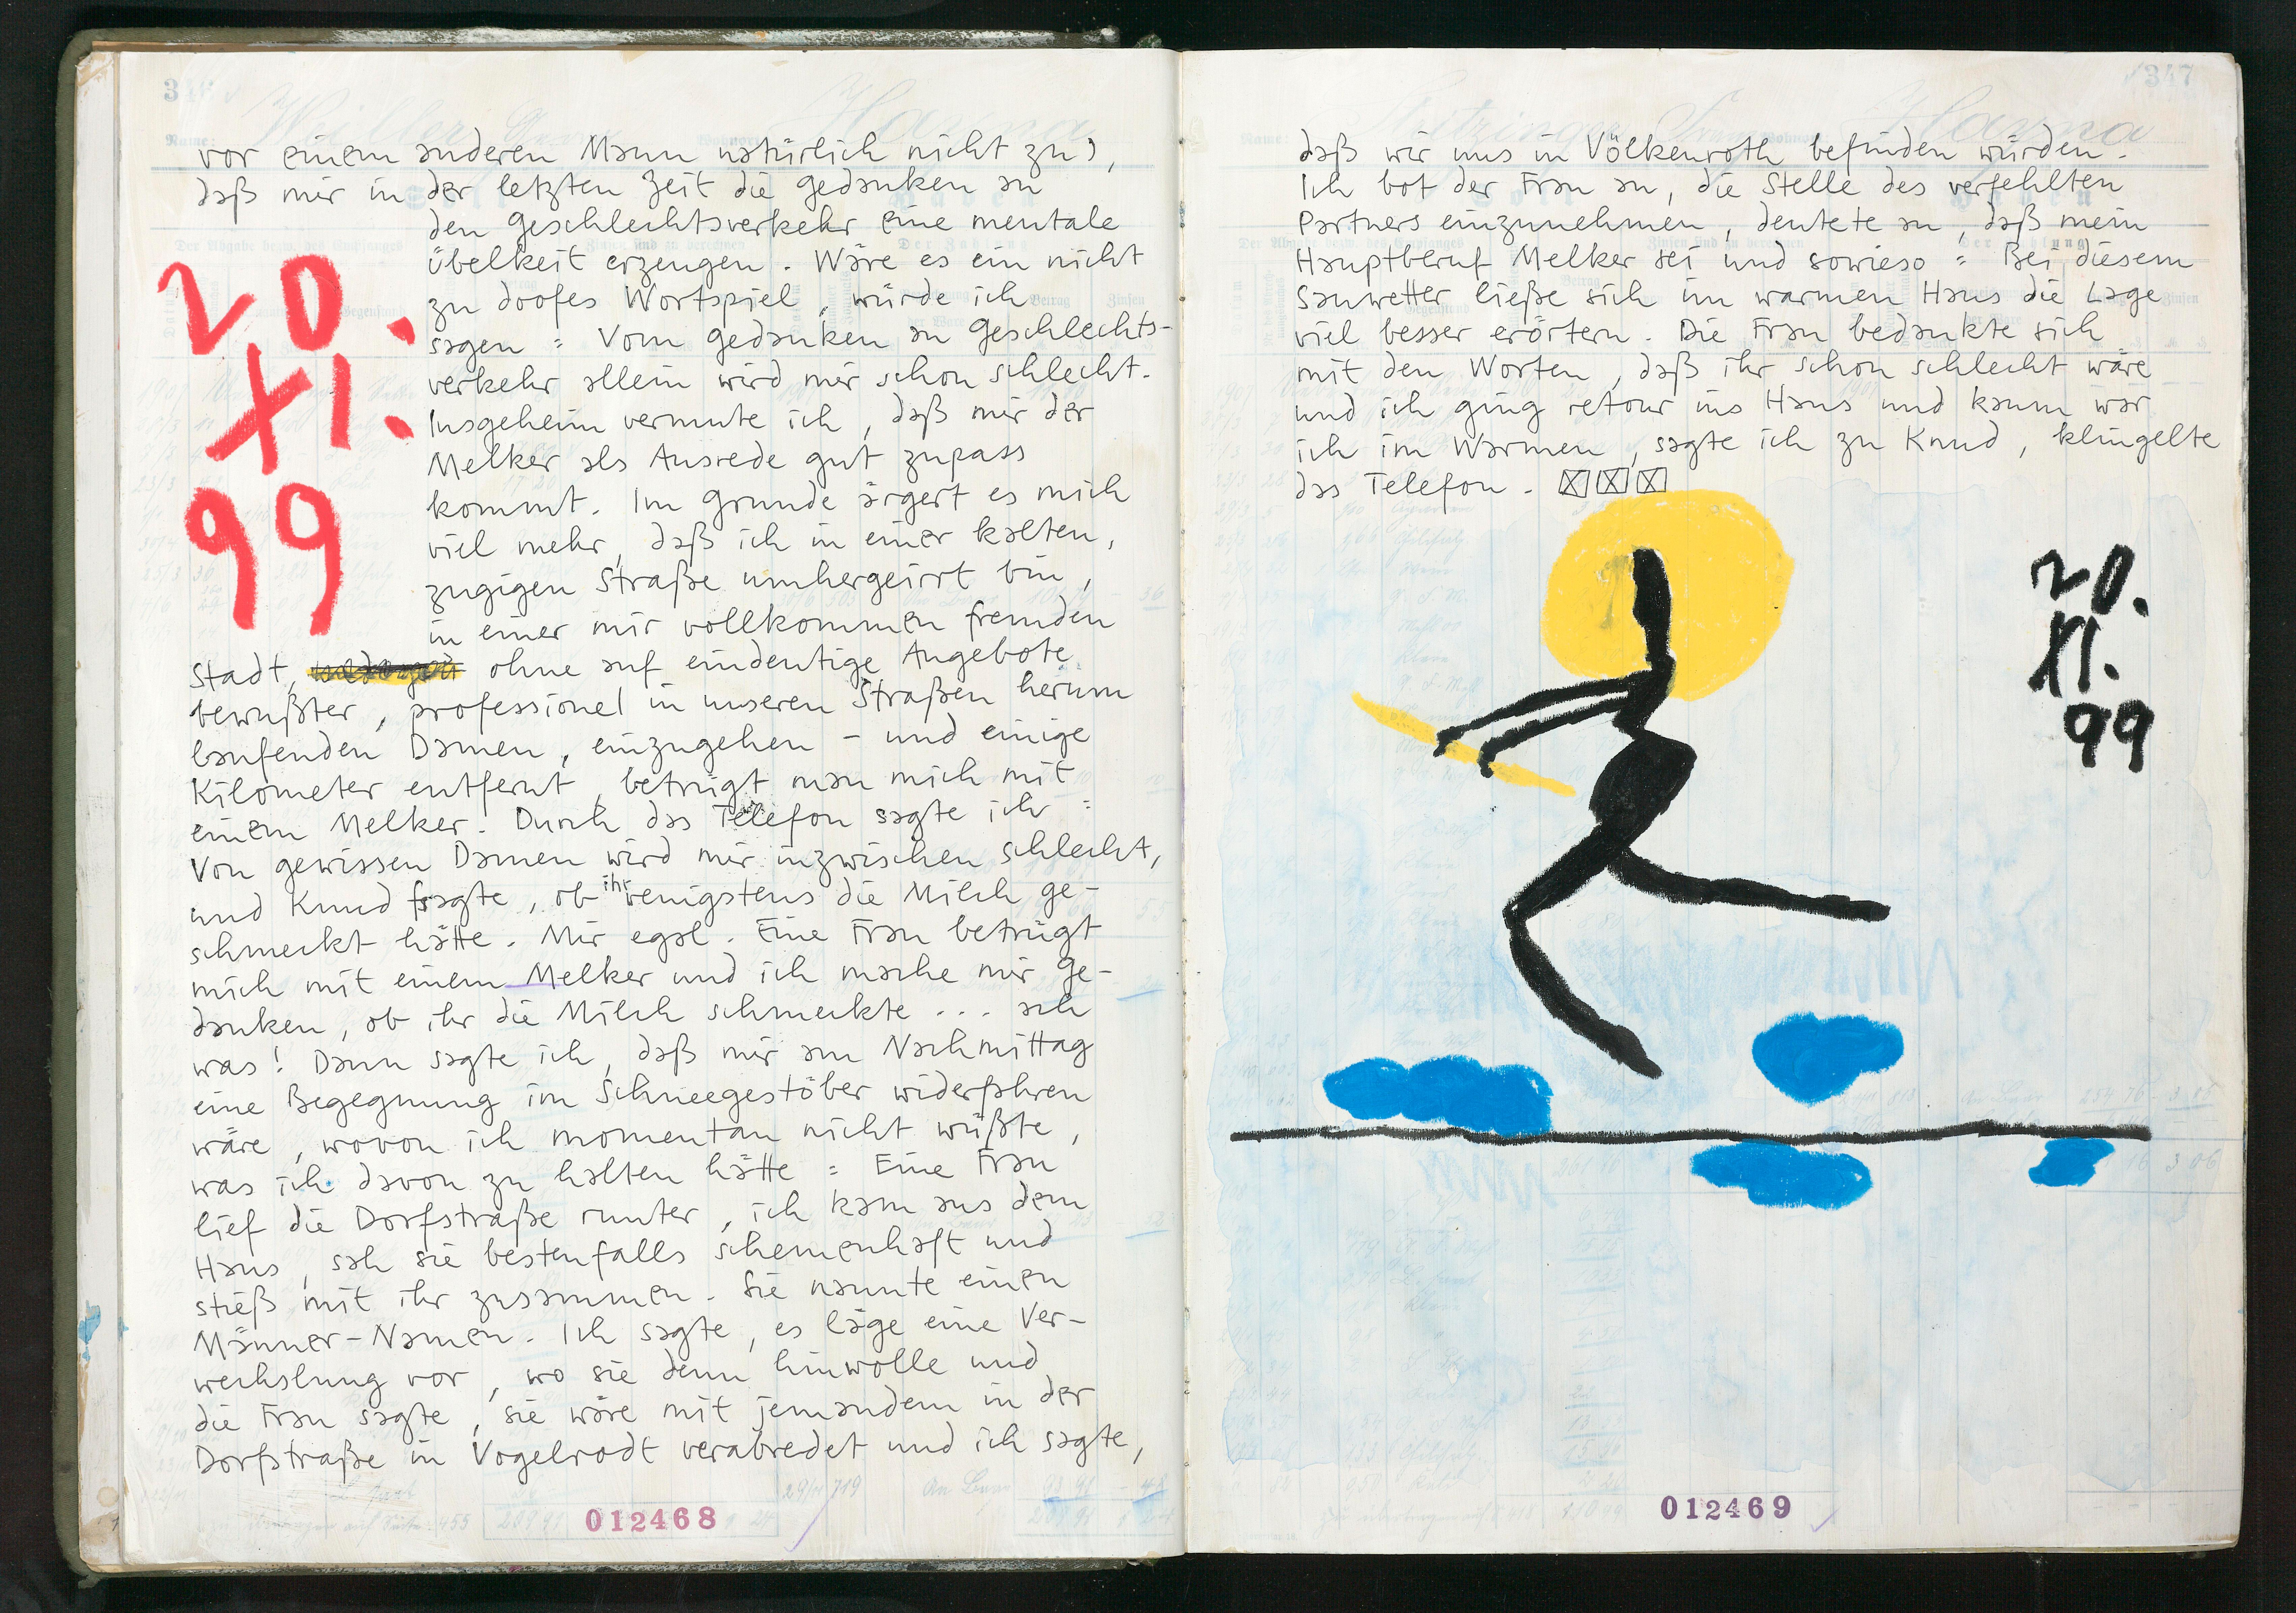 vor einem anderen Mann natürlich nicht zu),
daß mir in der letzten Zeit die Gedanken an
den Geschlechtsverkehr eine mentale
Übelkeit erzeugen. Wäre es ein nicht
zu doofes Wortspiel, würde ich
sagen: Vom Gedanken an Geschlechts-
verkehr allein wird mir schon schlecht.
Insgeheim vermute ich, daß mir der
Melker als Ausrede gut zupass
kommt. Im Grunde ärgert es mich
viel mehr, daß ich in einer kalten,
zugigen Straße umhergeirrt bin,
in einer mir vollkommen fremden
Stadt, ohne auf eindeutige Angebote
bewußter, professionel in unseren Straßen herum
laufenden Damen, einzugehen – und einige
Kilometer entfernt, betrügt man mich mit
einem Melker. Durch das Telefon sagte ich:
Von gewissen Damen wird mir inzwischen schlecht,
und Knud fragte, ob ihr wenigstens die Milch ge-
schmeckt hätte. Mir egal. Eine Frau betrügt
mich mit einem Melker und ich mache mir Ge-
danken, ob ihr die Milch schmeckte... ach
was! Dann sagte ich, daß mir am Nachmittag
eine Begegnung im Schneegestöber widerfahren
wäre, wovon ich momentan nicht wüßte,
was ich davon zu halten hätte: Eine Frau
lief die Dorfstraße runter, ich kam aus dem
Haus, sah sie bestenfalls schemenhaft und
stieß mit ihr zusammen. Sie nannte einen
Männer-Namen. Ich sagte, es läge eine Ver-
wechslung vor, wo sie denn hinwolle und
die Frau sagte, sie wäre mit jemandem in der
Dorfstraße in Vogelrodt verabredet und ich sagte,
20.
XI.
99
012468
347
daß wir uns in Völkenroth befinden würden.
Ich bot der Frau an, die Stelle des verfehlten
Partners einzunehmen, deutete an, daß mein
Hauptberuf Melker sei und sowieso: Bei diesem
Sauwetter ließe sich im warmen Haus die Lage
viel besser erörtern. Die Frau bedankte sich
mit den Worten, daß ihr schon schlecht wäre
und ich ging retour ins Haus und kaum war
ich im Warmen, sagte ich zu Knud, klingelte
das Telefon.
20.
XI.
99
012469